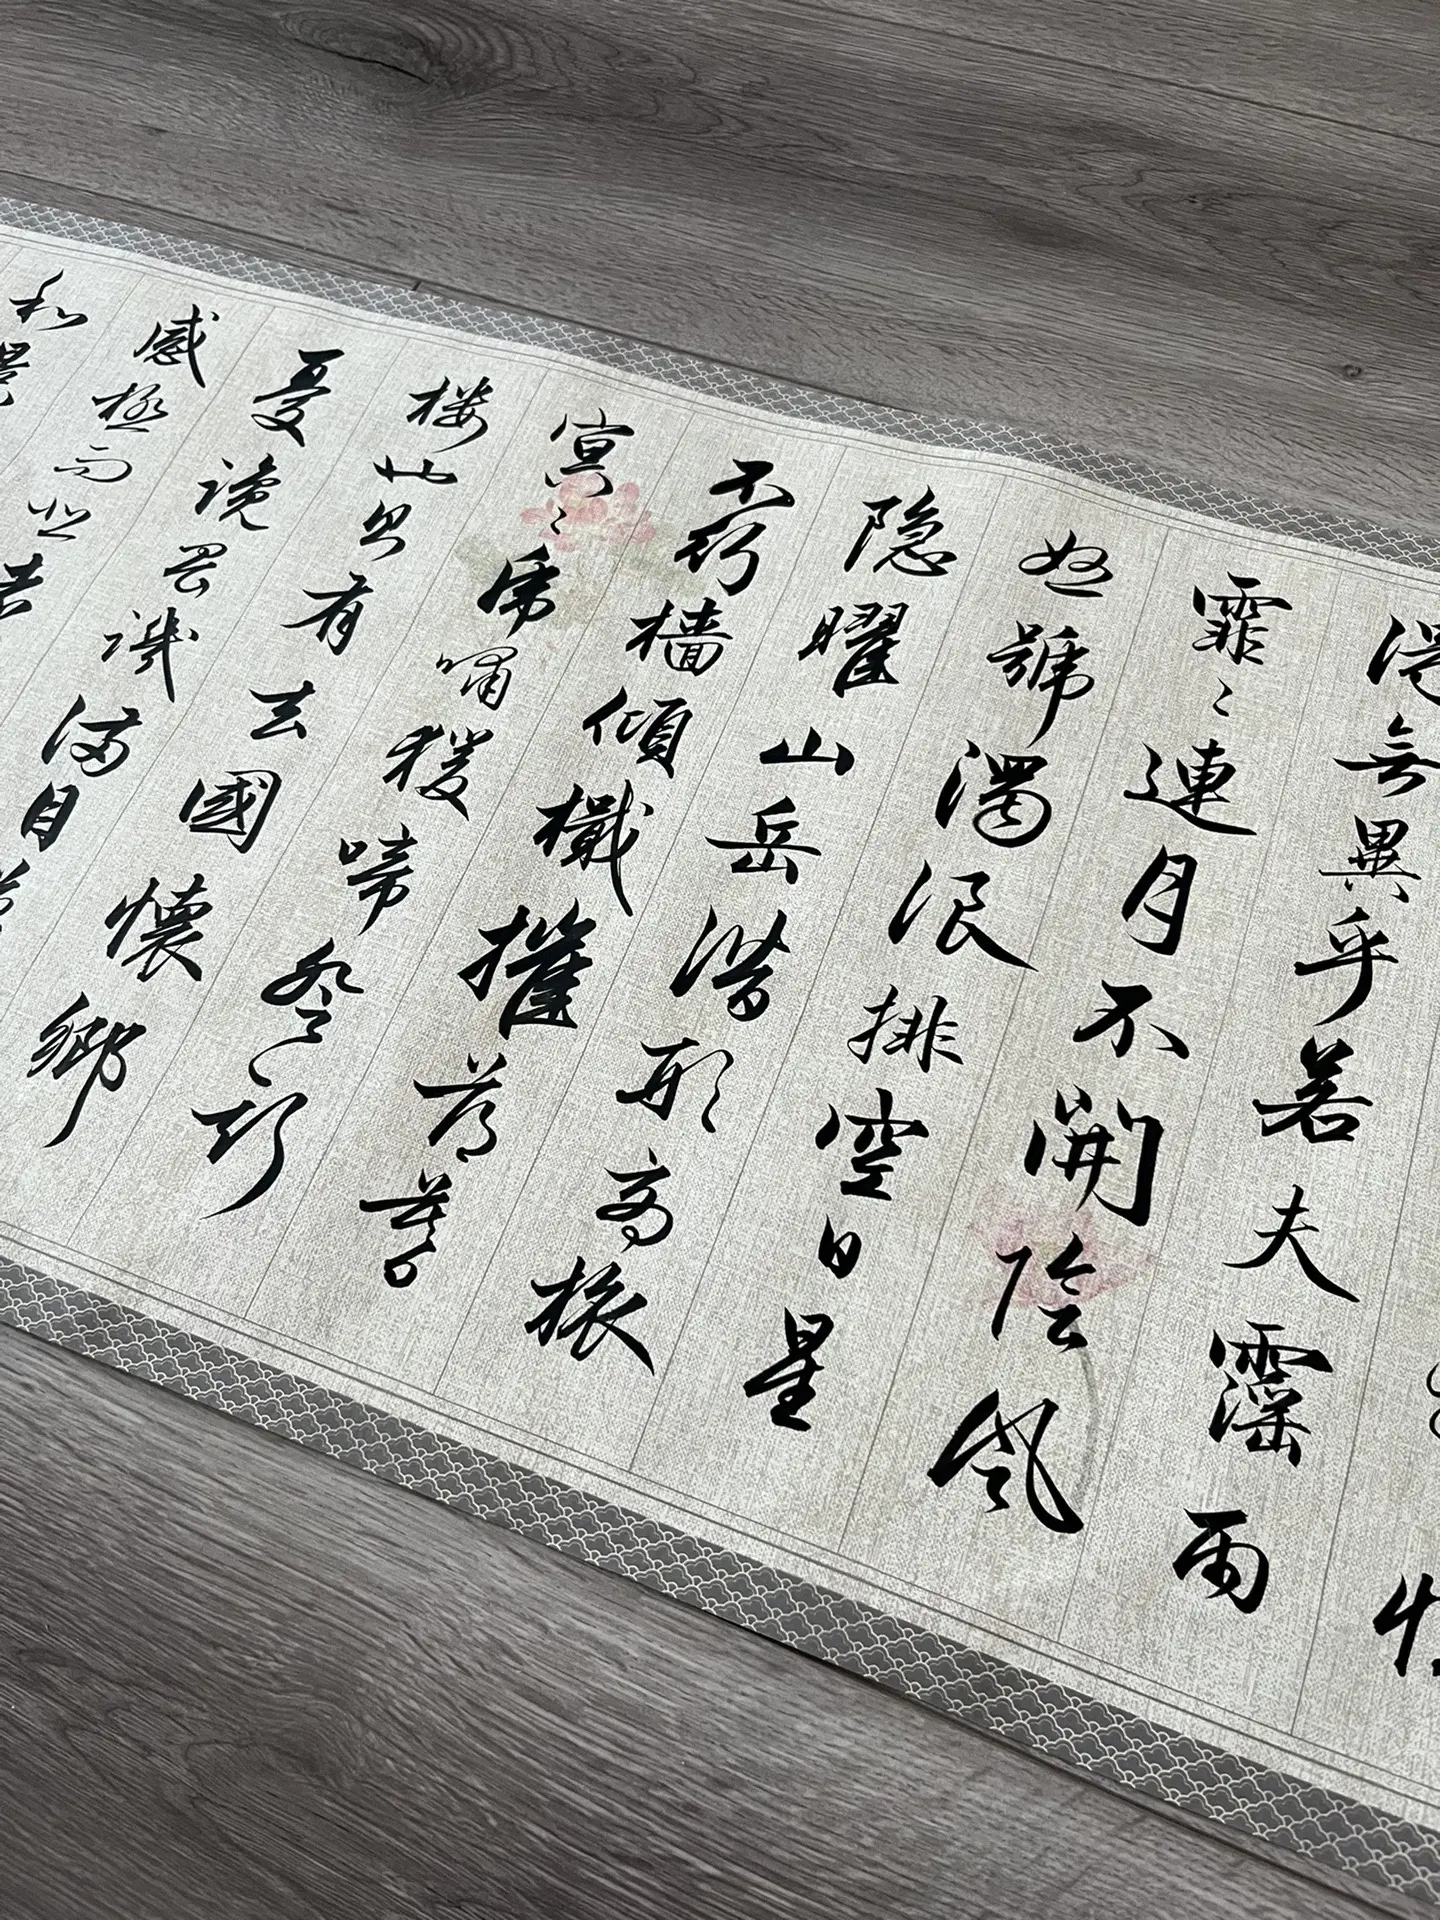 得無異乎若夫霪雨
霏〻連月不開陰風
怒號濁浪排空日星
隐曜山岳潛形商旅
不行檣傾檝摧薄暮
冥〻虎嘯猿啼登斯
楼也則有去國懷鄉
憂讒畏譏滿目
感極而悲者
和景